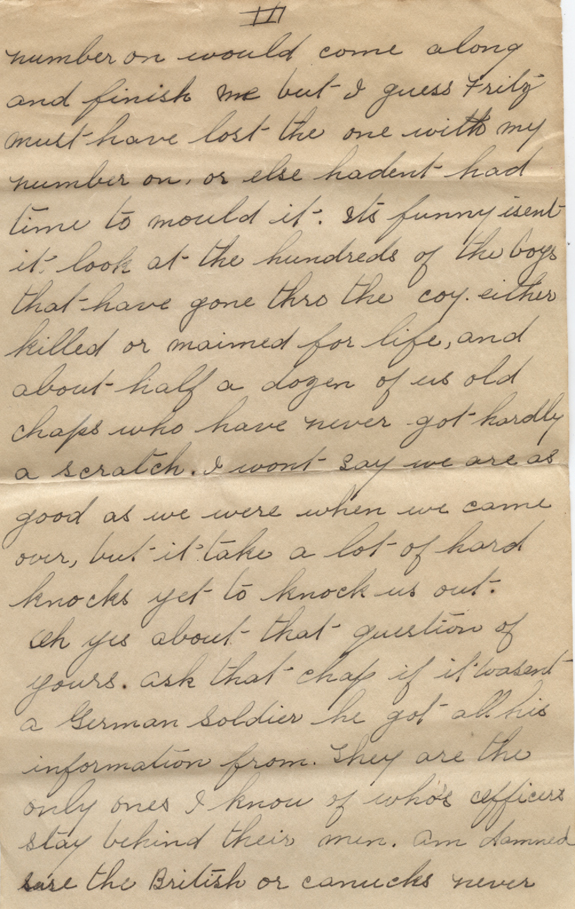 III
number on would come along
and finish me but I guess Fritz
must have lost the one with my
number on, or else hadent had
time to mould it. Its funny isent
it. look at the hundreds of the boys
that have gone thro the coy. either
killed or maimed for life, and
about half a dozen of us old
chaps who have never got hardly
a scratch. I wont say we are as
good as we were when we came
over, but it take a lot of hard
knocks yet to knock us out.
Oh yes about that question of
yours. ask that chap if it wasent
a German soldier he got all his
information from. They are the
only ones I know of who's officers
stay behind their men. am damned
sure the British or canucks never